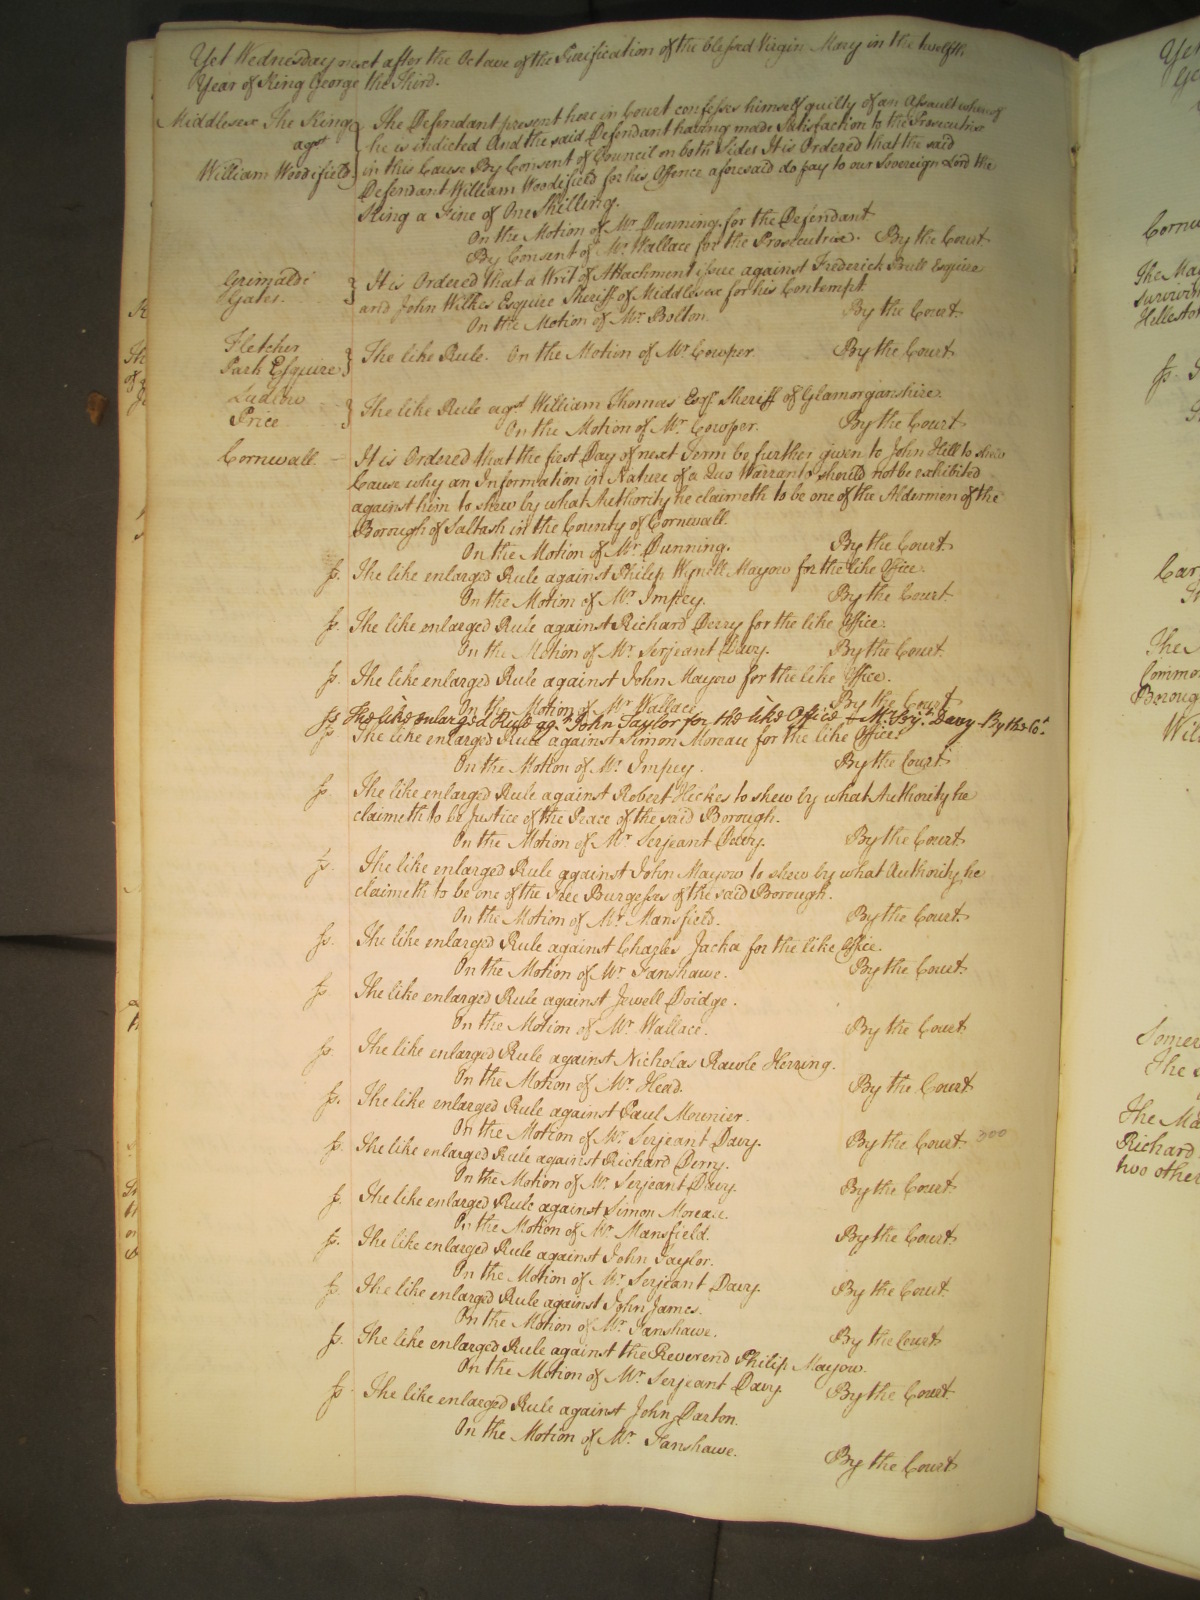 Yet Wednesday next after the Octave of the Purification of the blessed Virgin Mary in the twelfth
Year of King George the Third.
Middlesex The King
agst
William Woodifield
The Defendant present here in Court confesses himself guilty of an Assault whereof
he is indicted And the said Defendant having made Satisfaction to the Prosecutrix
in this Cause By Consent of Council on both Sides It is Ordered that the said
Defendant William Woodifield for his Offence aforesaid do pay to our Sovereign Lord the
King a Fine of One Shilling.
On the Motion of Mr. Dunning. for the Defendant
By Consent of Mr. Wallace for the Prosecutrix. By the Court
Grimaldi
Gates.
It is Ordered that a Writ of Attachment issue against Frederick Bull Esquire
and John Wilkes Esquire Sheriff of Middlesex for his Contempt
On the Motion of Mr. Bolton. By the Court
Fletcher
Park Esquire
The like Rule. On the Motion of Mr. Cowper. By the Court
Ludlow
Price
The like Rule agst William Thomas Esqr. Sheriff of Glamorganshire.
On the Motion of Mr. Cowper. By the Court
Cornwall. – It is Ordered that the first Day of next Term be further given to John Hill to shew
Cause why an Information in Nature of a Quo Warranto should not be exhibited
against him to shew by what Authority he claimeth to be one of the Aldermen of the
Borough of Saltash in the County of Cornwall.
On the Motion of Mr. Dunning. By the Court
ss. The like enlarged Rule against Philip Wynell Mayow for the like Office.
On the Motion of Mr. Impey. By the Court
ss. The like enlarged Rule against Richard Derry for the like Office.
On the Motion of Mr. Serjeant Davy. By the Court.
ss. The like enlarged Rule against John Mayow for the like Office.
On the Motion of Mr. Wallace By the Court
ss The like enlarged Rule agt. John Taylor for the like Office + Mr. Srjt. Davy - By the Cot.
ss The like enlarged Rule against Simon Moreau for the like Office.
On the Motion of Mr. Impey. By the Court
ss. The like enlarged Rule against Robert Hickes to shew by what Authority he
claimeth to be Justice of the Peace of the said Borough.
On the Motion of Mr. Serjeant Davy. By the Court
ss. The like enlarged Rule against John Mayow to shew by what Authority he
claimeth to be one of the Free Burgesses of the said Borough.
On the Motion of Mr. Mansfield. By the Court
ss. The like enlarged Rule against Charles Jacka for the like Office.
On the Motion of Mr. Fanshawe. By the Court
ss The like enlarged Rule against Jewell Doidge.
On the Motion of Mr. Wallace. By the Court
ss. The like enlarged Rule against Nicholas Rawle Herring.
On the Motion of Mr. Head. By the Court
ss. The like enlarged Rule against Paul Mounier.
On the Motion of Mr. Serjeant Davy. By the Court 300
ss. The like enlarged Rule against Richard Derry.
On the Motion of Mr. Serjeant Davy. By the Court
ss. The like enlarged Rule against Simon Moreau.
On the Motion of Mr. Mansfield. By the Court
ss. The like enlarged Rule against John Taylor.
On the Motion of Mr. Serjeant Davy. By the Court
ss. The like enlarged Rule against John James.
On the Motion of Mr. Fanshawe. By the Court
ss. The like enlarged Rule against the Reverend Philip Mayow.
On the Motion of Mr. Serjeant Davy. By the Court
ss. The like enlarged Rule against John Darton.
On the Motion of Mr. Fanshawe. By the Court
The Ma
surviving
Helleston
The
Common
Borough
The
The Ma
Richard
two other